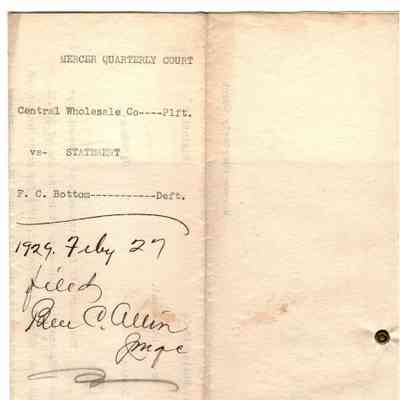 MERCER QUARTERLY COURT
Central Wholesale Co----Plft.
vs- STATMENT
F. C. Bottom-----------Deft.
1929. Feby 27
filed
Ben C. Allin
JMQC